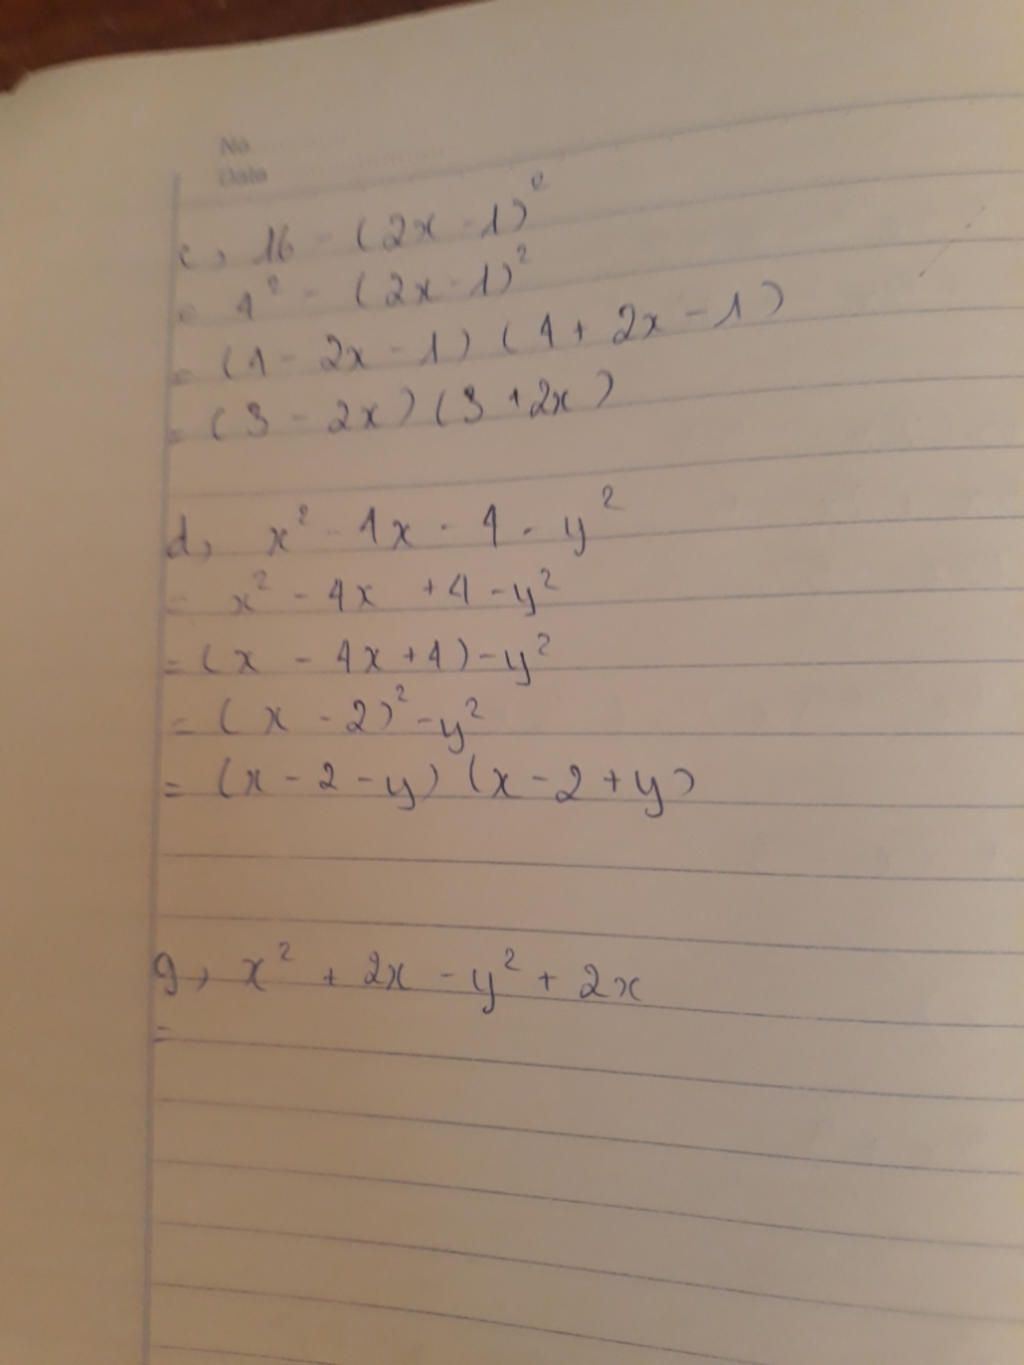 No
Date
c, 16 - (2x - 1)²
= 4² - (2x - 1)²
= (4 - 2x - 1) (4 + 2x - 1)
= (3 - 2x) (3 + 2x)
d, x² - 4x - 4 - y²
= x² - 4x + 4 - y²
= (x - 4x + 4) - y²
= (x - 2)² - y²
= (x - 2 - y) (x - 2 + y)
g, x² + 2x - y² + 2x
=